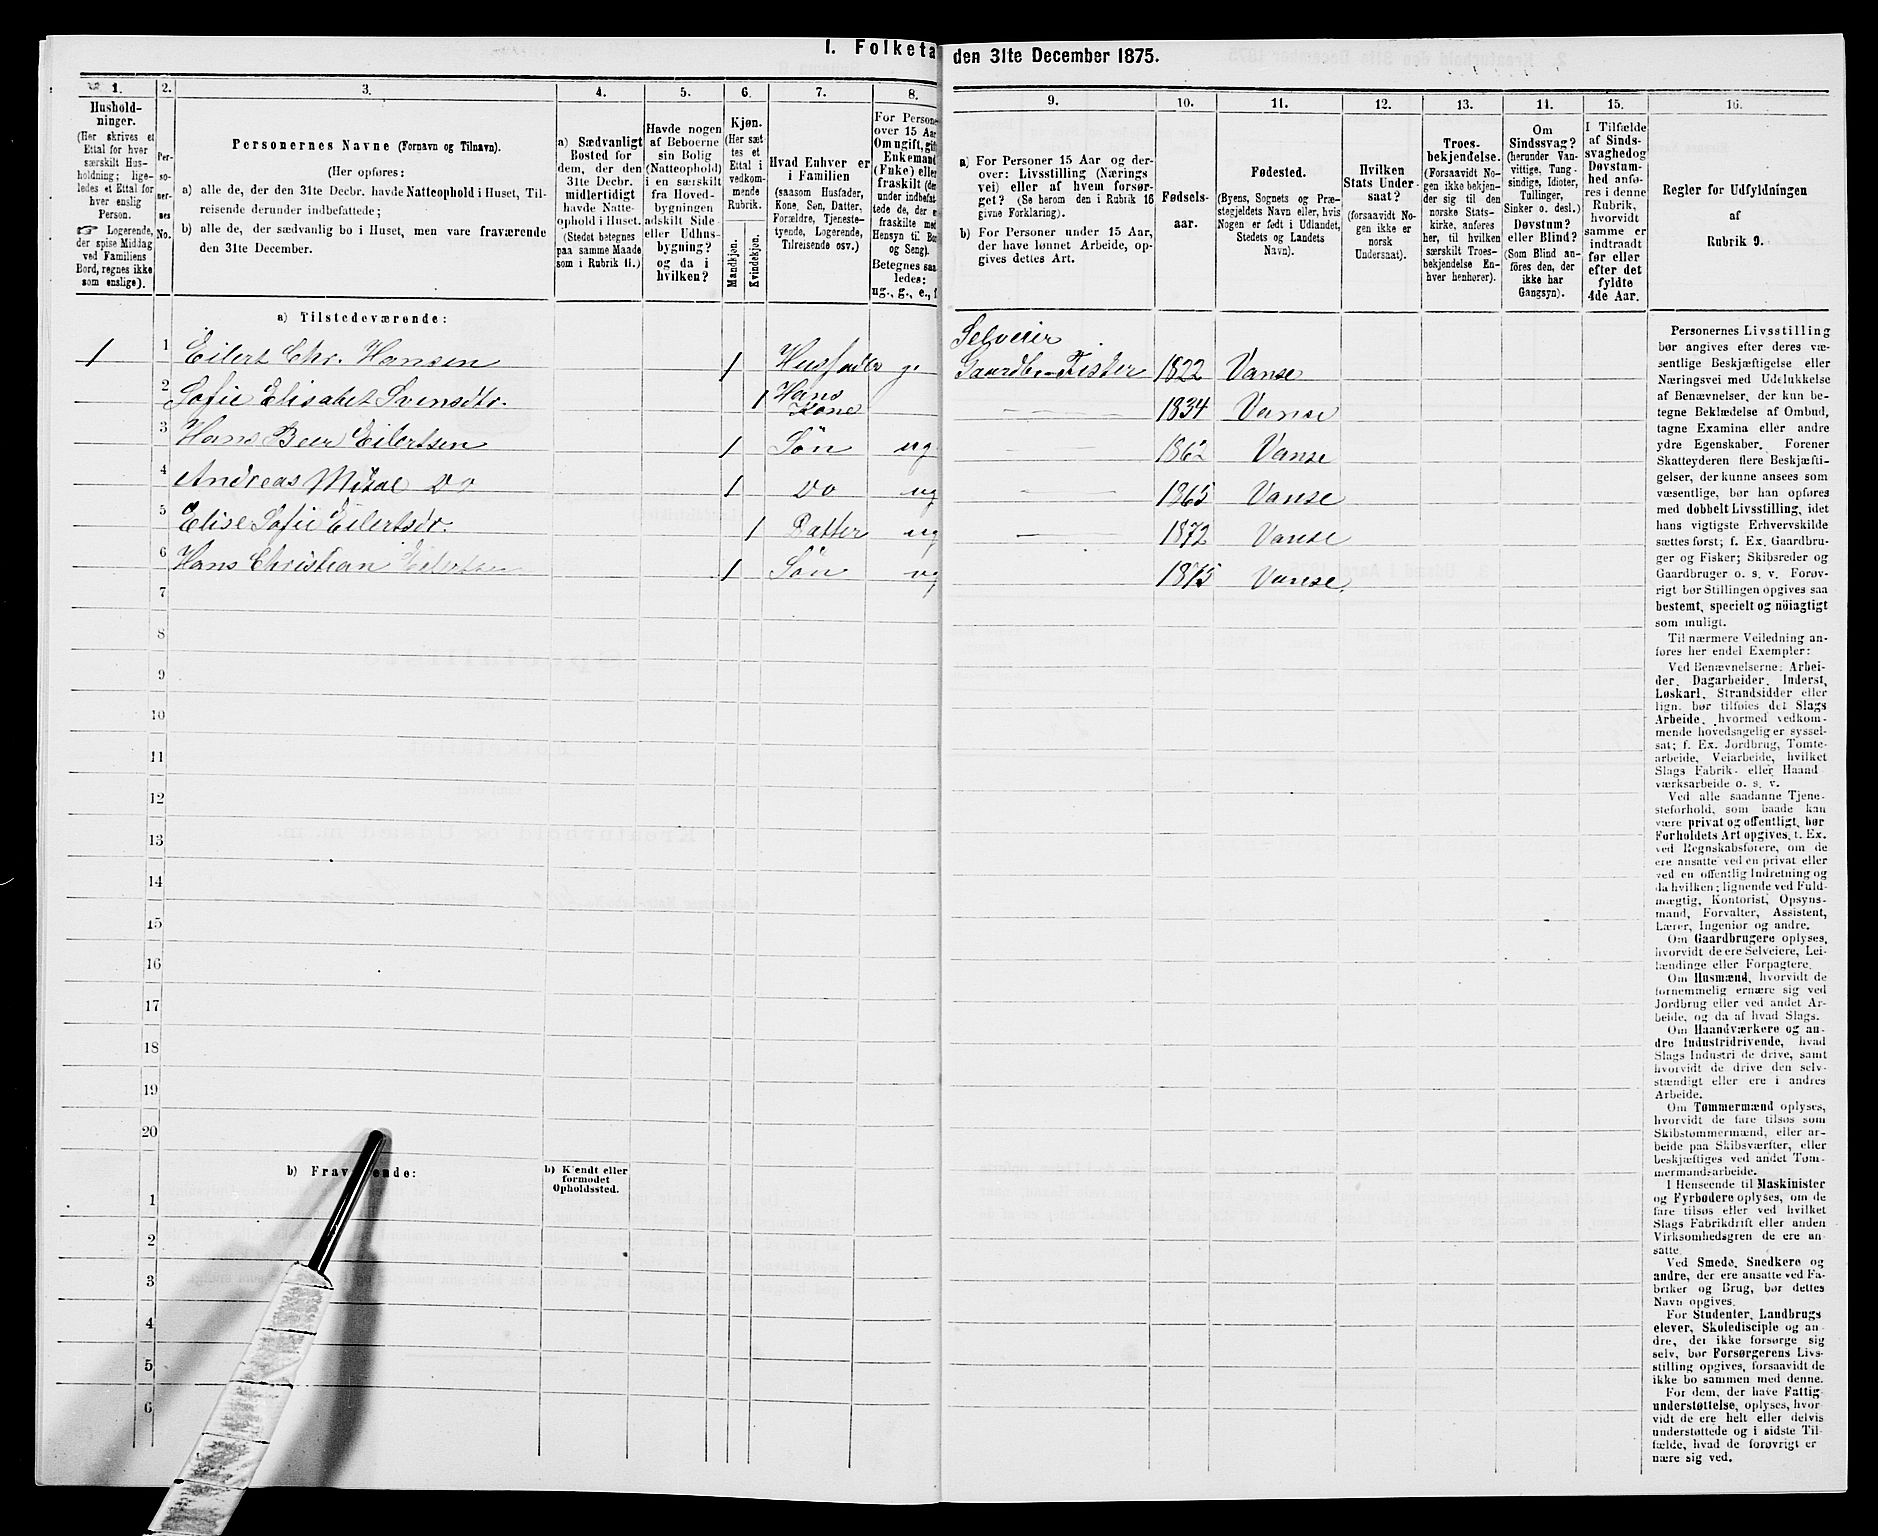 I. Folketa
den 31te December 1875.
1.
Hushold-
ninger.
(Her skrives et
Ettal for hver
særskilt Hus-
holdning; lige-
ledes et Ettal for
hver enslig
Person.
Logerende,
der spise Middag
ved Familiens
Bord, regnes ikke
som enslige).
2.
Per-
so-
ner-
nes
No.
3.
Personernes Navne (Fornavn og Tilnavn).
(Her opføres:
a) alle de, der den 31te Decbr. havde Natteophold i Huset, Til-
reisende derunder indbefattede;
b) alle de, der sædvanlig bo i Huset, men vare fraværende
den 31te December.
4.
a) Sædvanligt
Bosted for
dem, der den
31te Decbr.
midlertidigt
havde Natte-
ophold i Huset.
(Stedet betegnes
paa samme Maade
som i Rubrik 11.)
5.
Havde nogen
af Beboerne
sin Bolig
(Natteophold)
i en særskilt
fra Hoved-
bygningen
adskilt Side-
eller Udhus-
bygning?
og da i
hvilken?
6.
Kjøn.
(Her sæt-
tes et
Ettal i
vedkom-
mende
Rubrik.
Mandkjøn.
Kvindekjøn.
7.
Hvad Enhver er
i Familien
(saasom Husfader,
Kone, Søn, Datter,
Forældre, Tjeneste-
tyende, Logerende,
Tilreisende osv.)
8.
For Persone
over 15 Aar
Om ugift, gift
Enkemand
(Fuke) eller
fraskilt (der
under indbefat-
tede de, der e
fraskilte med
Hensyn til Bo
og Seng).
Betegnes saa
ledes:
ug., g., e., f
9.
a) For Personer 15 Aar og der-
over: Livsstilling (Nærings-
vei) eller af hvem forsør-
get? (Se herom den i Rubrik 16
givne Forklaring).
b) For Personer under 15 Aar,
der have lønnet Arbeide, op-
gives dettes Art.
10.
Fødsels-
aar.
11.
Fødested.
(Byens, Sognets og Præ-
stegjeldets Navn eller, hvis
Nogen er født i Udlandet,
Stedets og Landets
Navn).
12.
Hvilken
Stats Under-
saat?
(forsaavidt No-
gen ikke er
norsk
Undersaat).
13.
Troes-
bekjendelse.
(Forsaavidt No-
gen ikke bekjen-
der sig til den
norske Stats-
kirke, anføres
her, til hvilken
særskilt Troes-
bekjendelse En-
hver henhører).
14.
Om
Sindssvag?
(herunder Van-
vittige, Tung-
sindige, Idioter,
Tullinger,
Sinker o. desl.)
Døvstum?
eller Blind?
(Som Blind an-
føres den, der
ikke har
Gangsyn).
15.
I Tilfælde
af Sinds-
svaghed og
Døvstum-
hed anfø-
res i denne
Rubrik,
hvorvidt
samme er
indtraadt
før eller
efter det
fyldte
4de Aar.
16.
Regler for Udfyldningen
af
Rubrik 9.
a) Tilstedeværende:
1 1 Eilert Chr. Hansen 1 Husfader g. Selveier Gaardbr. Fisker 1822 Vanse
2 Sofie Elisabet Svensdtr. 1 Hans Kone 1834 Vanse
3 Hans Beer Eilertsen 1 Søn ug 1862 Vanse
4 Andreas Mikal Do 1 Do ug 1865 Vanse
5 Elise Sofie Eilertsdr. 1 Datter ug 1872 Vanse
6 Hans Christian Eilertsen 1 Søn ug 1875 Vanse.
7
8
9
10
11
12
13
14
15
16
17
18
19
20
b) Frav ende:
b) Kjendt eller
formodet
Opholdssted.
1
2
3
4
5
6
Personernes Livsstilling
bør angives efter deres væ-
sentlige Beskjæftigelse eller
Næringsvei med Udelukkelse
af Benævnelser, der kun be-
tegne Beklædelse af Ombud,
tagne Examina eller andre
ydre Egenskaber. Forener
Skatteyderen flere Beskjæfti-
gelser, der kunne ansees som
væsentlige, bør han opføres
med dobbelt Livsstilling, idet
hans vigtigste Erhvervskilde
sættes først; f. Ex. Gaardbru-
ger og Fisker; Skibsreder og
Gaardbruger o. s. v. Forøv-
rigt bør Stillingen opgives saa
bestemt, specielt og nöiagtigt
som muligt.
Til nærmere Veiledning an-
føres her endel Exempler:
Ved Benævnelserne: Arbei-
der, Dagarbeider, Inderst,
Løskarl, Strandsidder eller
lign. bør tilføies det Slags
Arbeide, hvormed vedkom-
mende hovedsagelig er syssel-
sat; f. Ex. Jordbrug, Tomte-
arbeide, Veiarbeide, hvilket
Slags Fabrik- eller Haand
værksarbeide o. s. v.
Ved alle saadanne Tjene-
steforhold, som baade kan
være privat og offentligt, bør
Forholdets Art opgives, t. Ex.
ved Regnskabsførere, om de
ere ansatte ved en privat eller
ved en offentlig Indretning og
da hvilken; lignende ved Fuld-
mægtig, Kontorist, Opsyns-
mand, Forvalter, Assistent,
Lærer, Ingeniør og andre.
Om Gaardbrugere oplyses,
hvorvidt de ere Selveiere, Lei-
lændinge eller Forpagtere.
Om Husmænd, hvorvidt de
fornemmelig ernære sig ved
Jordbrug eller ved andet Ar-
beide, og da af hvad Slags.
Om Haandværkere og an-
dre Industridrivende, hvad
Slags Industri de drive, samt
hvorvidt de drive den selv-
stændigt eller ere i andres
Arbeide.
Om Tømmermænd oplyses,
hvorvidt de fare tilsøs som
Skibstømmermænd, eller ar-
beide paa Skibsværfter, eller
beskjæftiges ved andet Tøm-
mermandsarbeide.
I Henseende til Maskinister
og Fyrbødere oplyses, om de
fare tilsøs eller ved hvilket
Slags Fabrikdrift eller anden
Virksomhedsgren de ere an-
satte.
Ved Smede, Snedkere og
andre, der ere ansatte ved Fa-
briker og Brug, bør dettes
Navn opgives.
For Studenter, Landbrugs
elever, Skoledisciple og an-
dre, der ikke forsørge sig
selv, bør Forsørgerens Livs-
stilling opgives, forsaavidt de
ikke bo sammen med denne.
For dem, der have Fattig-
understøttelse, oplyses, hvor-
vidt de ere helt eller delvis
understøttede og i sidste Til-
fælde, hvad de forøvrigt er
nære sig ved.